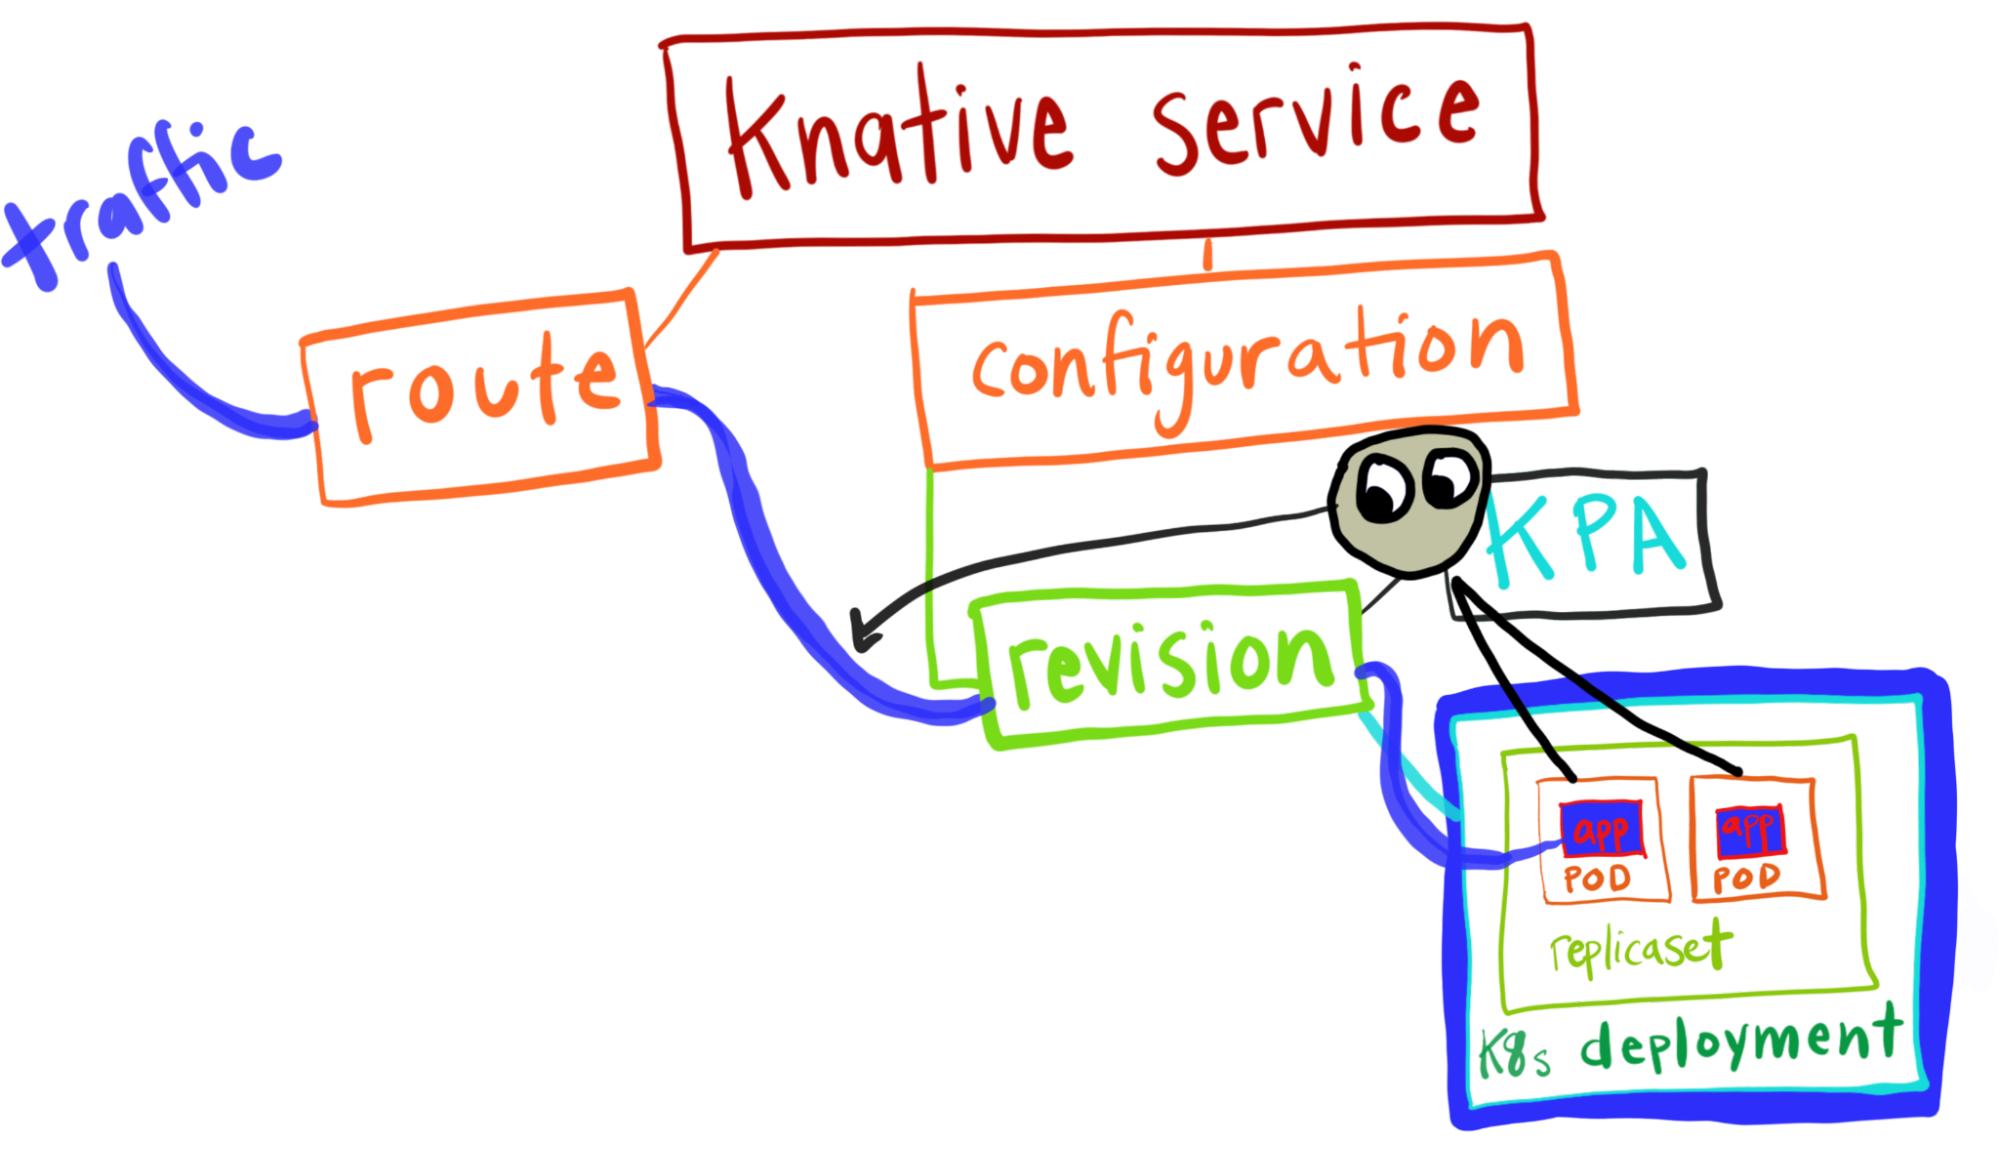 Knative service
traffic
route
configuration
KPA
revision
app
POD
app
POD
replicaset
K8s deployment